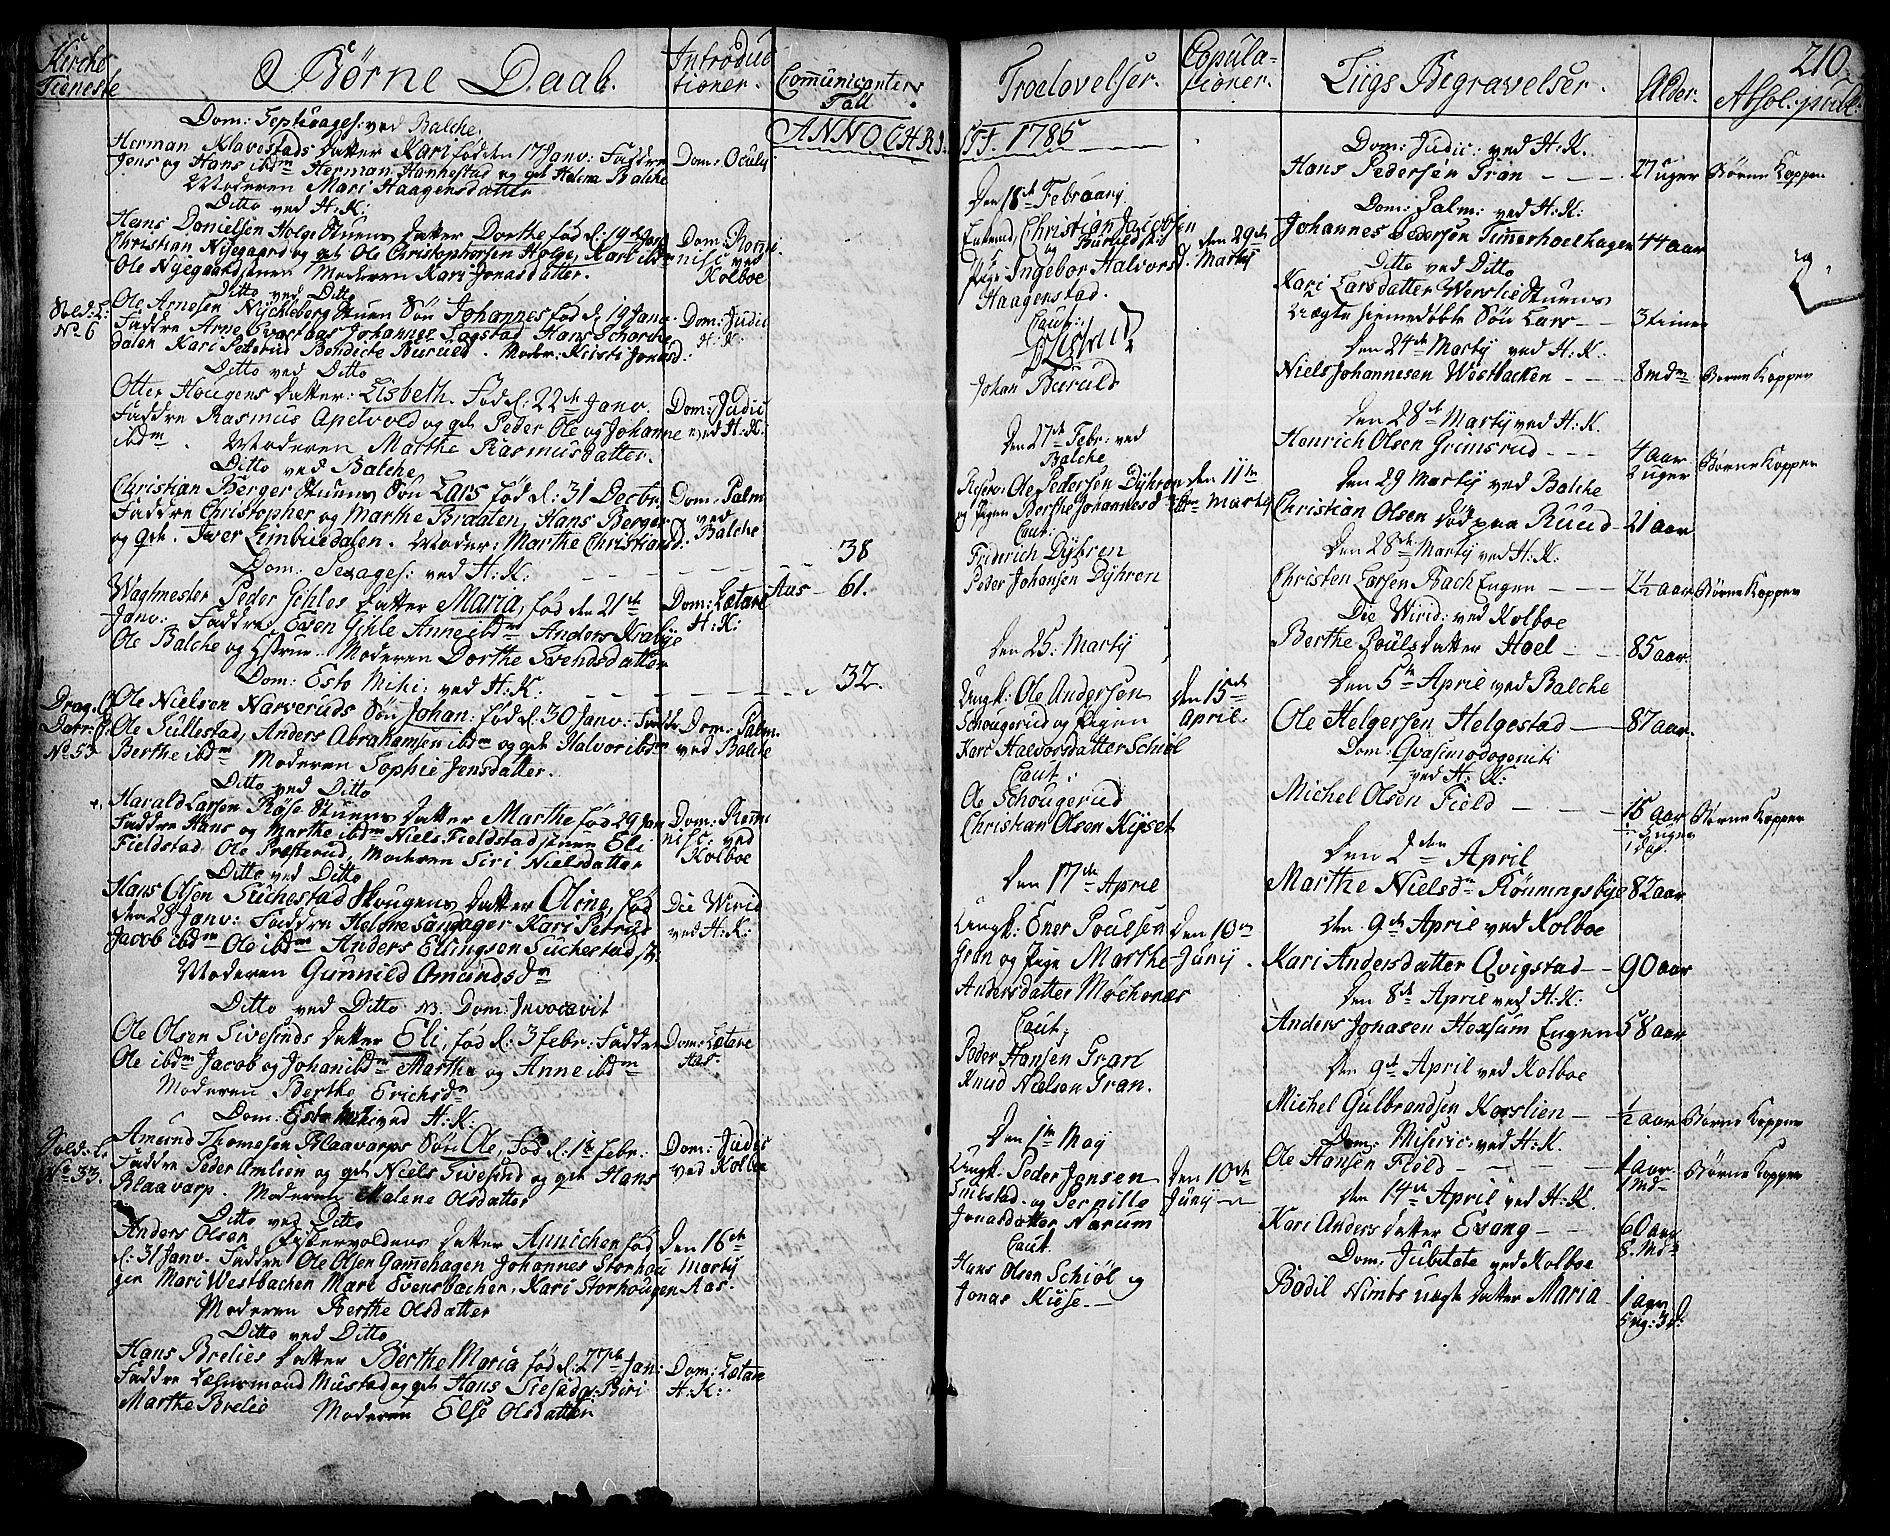 Kirche
Tieneste
Børne Daab.
Introduc
tioner.
Comunicanter
Tall
ANNO CHRI
Dom: Septuages: ved Balche.
Herman Klavestads datter Kari fød den 17 Janv: Faddre
Jens og Hans ibdm Herman Hanhestad og get Helena Balche
Moderen Mari Haagensdatter
Dom: Oculy
Ditto ved H: K:
Hans Danielsen Holge Stuens datter Dorthe fød d: 19de Janv
Christian Nyegaard og get Ole Christophersen Holge, Kari ibdm
Ole Nyegaardstuen Moderen Kari Jonasdatter.
Dom: Remi
nisc ved
Kolboe
Ditto ved Ditto
Sold: L:
No 6
Ole Arnesen Nyckleberg Stuen Søn Johannes fød d: 19 Janv:
Faddre Arne Johannes Sogstad Hans Schorbe
dalen Kari Petterud Bendicte Buruld. Moder: Kirsti Jonasd:
Dom: Judic
H: K:
Ditto ved Ditto
Otter Hougens datter: Lisbeth. Fød d: 22de Janv.
Faddre Rasmus Apelvold og get Peder Ole og Johanne
ibdm. Moderen Marthe Rasmusdatter.
Dom: Judic
ved H: K:
Ditto ved Balche
Christian Berger Stuens Søn Lars fød d: 31 Decbr.
Faddre Christopher og Marthe Braaten, Hans Berger
og get. Iver Limbuedalen. Moder: Marthe Christiansd:
Dom: Palm
ved
Balche
38
Dom: Sexages: ved H: K:
Wagtmester Peder Gihles datter Maria, fød den 21de
Janv: Faddre: Even Gihle Anne ibdm Anders Krabye
Ole Balche og Hstrue. Moderen Dorthe Svendsdatter
Dom: Lætare
H: K:
Aas 61.
Dom: Esto Mihi: ved H: K:
32.
Drag. C
No 53
Ole Nielsen Narveruds Søn Johan: fød d: 30 Janv: Faddr
Ole Sullestad, Anders Abrahamsen ibdm og get Halvor ibdm
Berthe ibdm Moderen Sophie Jensdatter.
Dom: Palm.
ved Balche
Ditto ved Ditto
Harald Larsen Røise Stuens datter Marthe fød 29 Jan
Faddre Hans og Marthe ibdm Niels Fieldstadstuen Eli
Fieldstad Ole Presterud, Moderen Siri Nielsdatter
Dom: Remi
nisc: ved
Kolboe
Ditto ved Ditto
Hans Olsen Suchestad Hougens datter Oline, fød
den 28 Janv: Faddre Helene Sangager Kari Petrigs
Jacob ibdm Ole ibdm Anders Ellingsen Suchestad st:
Moderen Gunnild Amundsdr
Die Virid
ved H: K:
Ditto ved Ditto NB. Dom: Invocavit
Ole Olsen Sivesinds datter Eli, fød d: 3 febr: Faddre
Ole ibdm Jacob og Johan ibdm Marthe og Anne ibdm
Moderen Berthe Erichsdr
Dom: Lætare
Aas.
Dom: Esto Mihi ved H: K:
Sold: L:
No 33.
Amund Thomesen Blaavarps Søn Ole, fød d: 1te febr:
Faddre Peder Amlien og get Niels Sivesind og get Hans
Blaavarp. Moderen Malene Olsdatter
Dom: Judic
ved Kolboe
Ditto ved Ditto
Anders Olsen datter Annichen fød
d: 31 Janv. Faddre Ole Olsen Gamehagen Johannes Storhou
gen Mari Westbachen Mari Evensbachen, Kari Storhougen
Moderen Berthe Olsdatter
Den 16de
Martij
Aas.
Ditto ved Ditto
Hans Brelies datter Berthe Maria fød d: 27de Jan:
Faddre Lehnsmand Mustad og get Hans Berj
Marthe Brelie Moderen Else Olsdatter
Dom: Lætare
H: K:
Troelovelser.
Copula-
tioner.
Liigs Begravelser.
Alder.
Absol: publ:
210
STI. 1785
Den 18de Februarij
Enkemd, Christian Jacobsen
og Buruldstu
Pige: Ingebor Halvorsd.
Haagenstad.
Caut:
Johan Buruld
den 29de
Martij
Den 27de Febr: ved
Balche
Reserv: Ole Pedersen Dyhren
og Pigen Berthe Johannesd
Caut:
Friderich Dyhren
Peder Johansen Dyhren
den 11te
Martij
Den 25. Martij
Ungk: Ole Andersen
Schougerud og Pigen
Kari Halvorsdatter Schiøl
Caut:
Ole Schougerud
Christian Olsen Kiyset
den 15de
April.
Den 17de April
Ungk: Ener Poulsen
Gran og Pige Marthe
Andersdatter Møchonas
Caut:
Peder Hansen Gran
Knud Nielsen Gran.
Den 10de
Junij.
Den 1te May
Ungk: Peder Jensen
Fribstad. og Pernille
Jonasdatter Narum
Caut.
Hans Olsen Schiøl og
Jonas Kiise.
Den 10de
Junij
Dom: Judic: ved H: K.
Hans Pedersen Gran
27 uger Børne Kopper
Dom: Palm: ved H: K:
Johannes Pedersen Timmerhoelhagen 44 aar
Ditto ved Ditto
Kari Larsdatter Werslie Stuens
Uægte hiemedøbte Søn Lars 3 timer
Den 24de Martij ved H: K:
Niels Johannesen Westbacken 8 mdr Børne Kopper
Den 28de Martij ved H: K.
Henrich Olsen Grimsrud
4 aar
2 uger Børne Kopper
Den 29 Martij ved Balche
Christian Olsen Ruud 21 aar
Den 28de Martij ved H: K.
Christen Larsen Bach Engen 2½ aar Børne Kopper
Die Virid: ved Kolboe
Berthe Poulsdatter Hoel 85 aar.
Den 5te April ved Balche
Ole Helgersen Helgestad 87 aar.
Dom: Qvasimodogeniti
ved H: K:
Michel Olsen Field
15 aar Børne Kopper
3 uger
1 dag.
Den 2den April
Marthe Nielsdr Rønningsbye 82 aar
Den 9de April ved Kolboe
Kari Andersdatter Qvigstad 90 aar
Den 8de April ved H: K:
Anders Jonasen Hoxsum Engen 58 aar
Den 9de April ved Kolboe
Michel Gulbrandsen Korslien ½ aar Børne Kopper
Dom: Miseric: ved H: K.
Ole Hansen Field
1 aar
1 Md Børne Kopper
Den 14de April ved H: K.
Kari Andersdatter Evang
60 aar
8. Mdr
Dom: Jubilate ved Kolboe
Bodil Nimbs uægte datter Maria
1 aar
5 ug: 3 d: